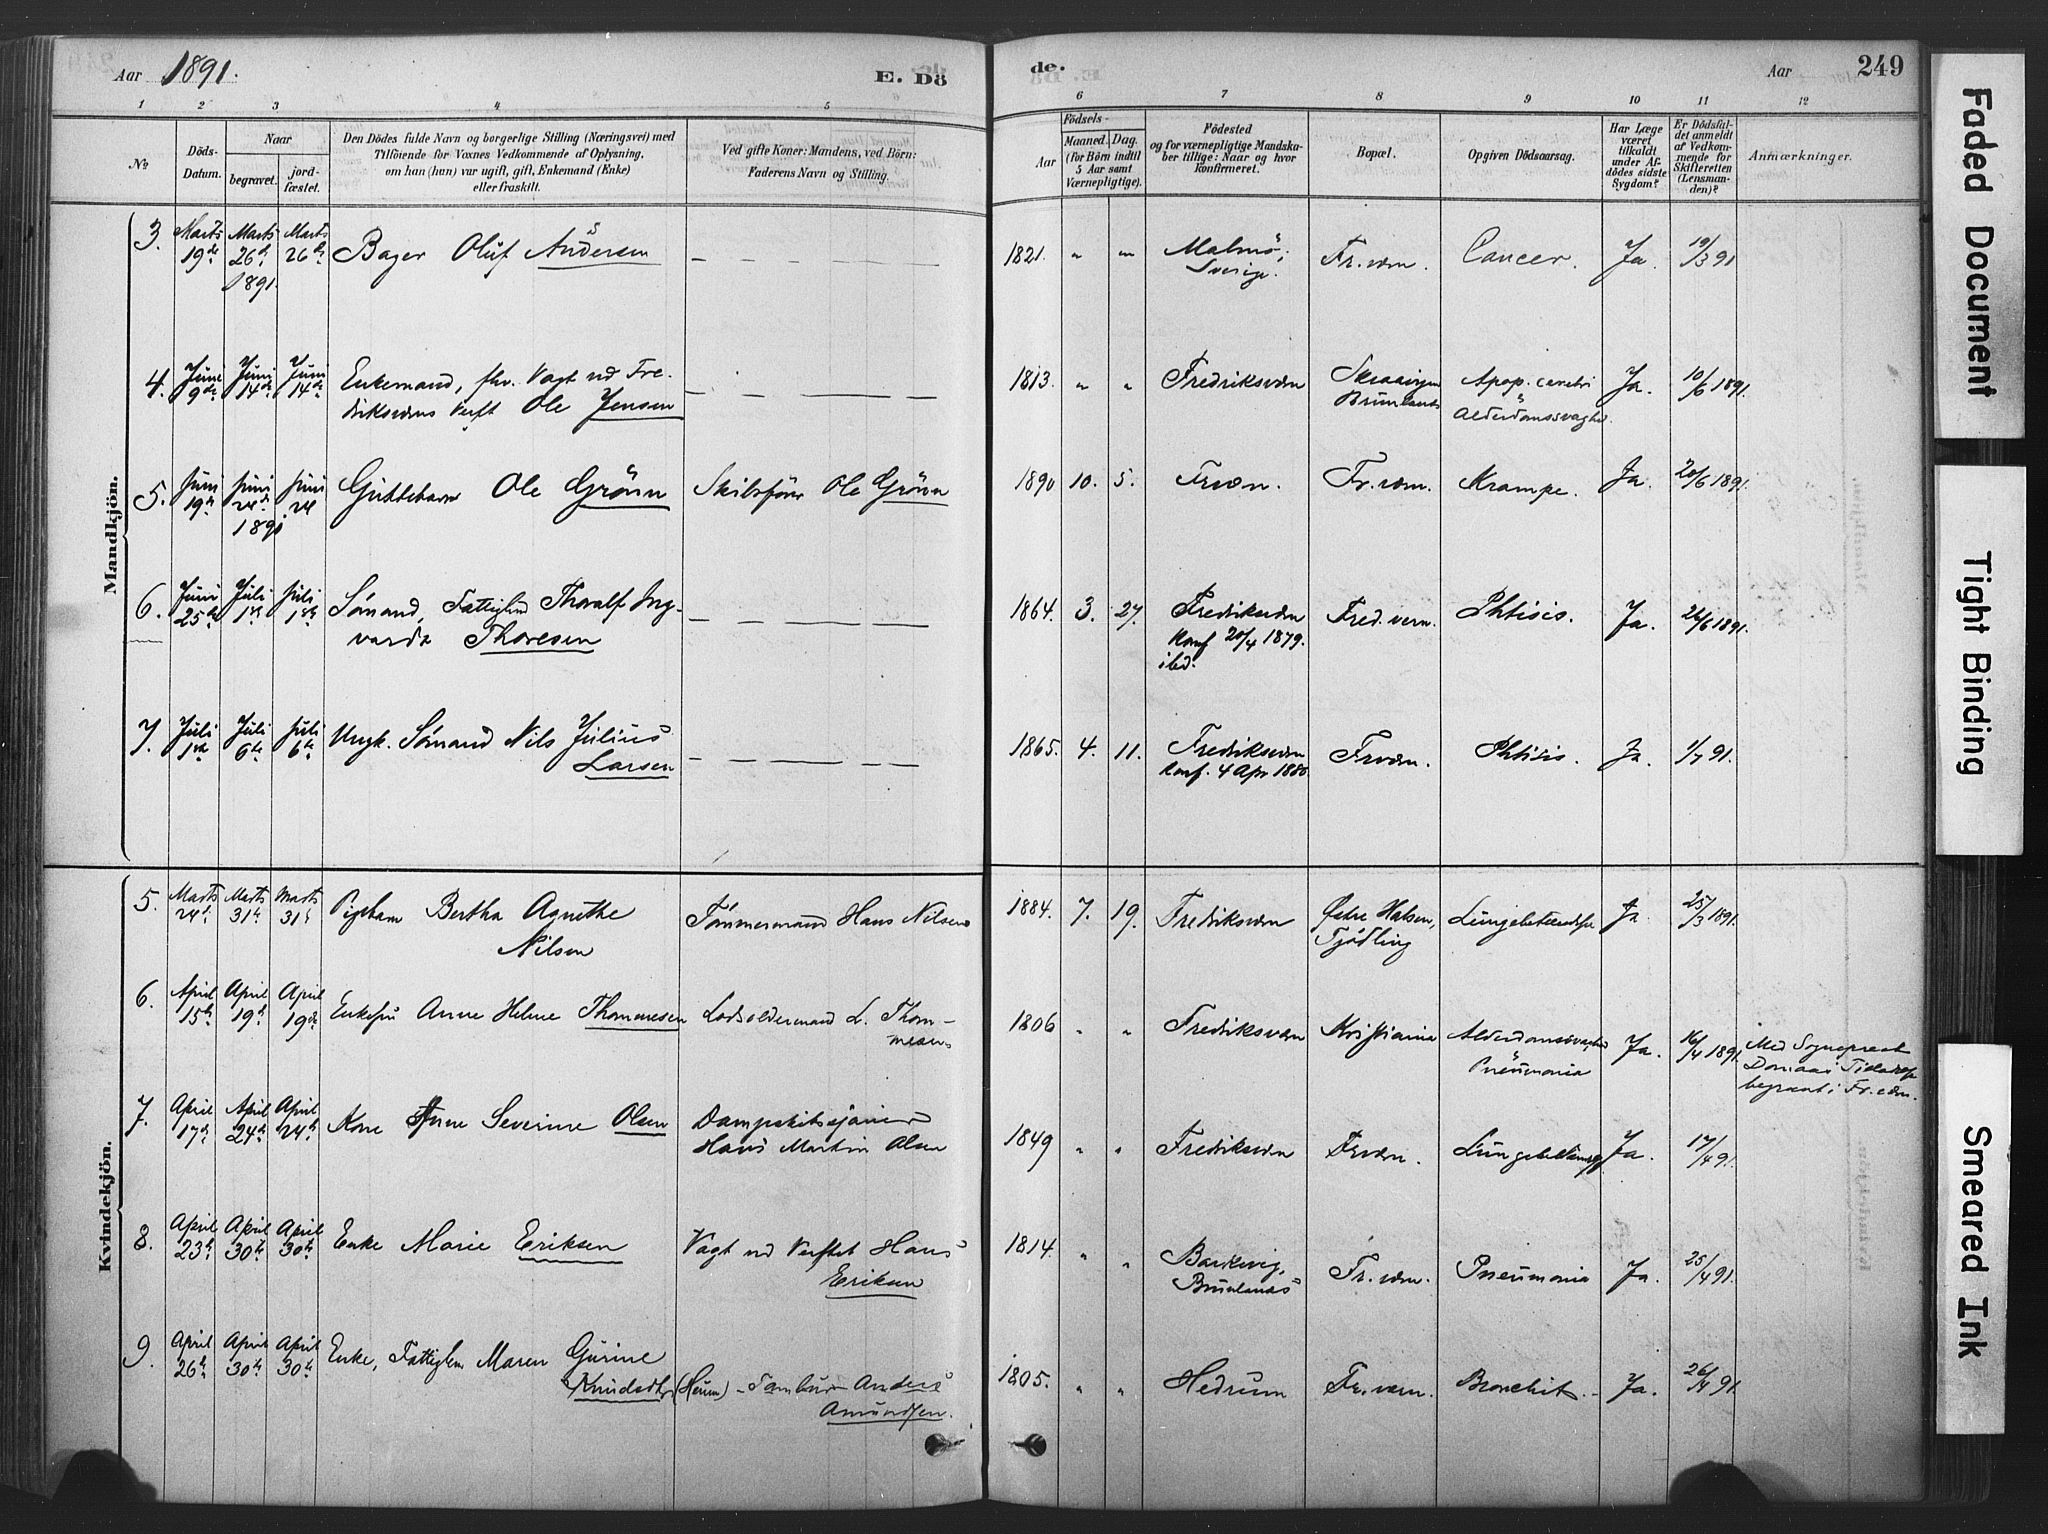 Aar 1891. E. Dö
de. Aar 249
1 2 3 4 5
6 7 8 9 10 11 12
No
Döds-
Datum.
Naar
begravet.
jord-
fæstet.
Den Dödes fulde Navn og borgerlige Stilling (Næringsvei) med
Tilföiende for Voxnes Vedkommende af Oplysning,
om han (hun) var ugift, gift, Enkemand (Enke)
eller fraskilt.
Ved gifte Koner: Mandens, ved Börn:
Faderens Navn og Stilling.
Födsels-
Aar
Maaned. Dag.
(for Börn indtil
5 Aar samt
Værnepligtige).
Födested
og for værnepligtige Mandska-
ber tillige: Naar og hvor
konfirmeret.
Bopæl.
Opgiven Dödsaarsag.
Har Læge
været
tilkaldt
under Af-
dödes sidste
Sygdom?
Er Dödsfal-
det anmeldt
af Vedkom-
mende for
Skifteretten
(Lensman-
den)?
Anmærkninger.
Mandkjön.
3. Marts 19de Marts 26de 1891. Marts 26de Bager Oluf Andersen 1821. " " Malmø, Sverige. Fr.værn. Cancer. Ja. 19/3 91
4. Juni 9de Juni 14de Juni 14de Enkemand, fhv. Vagt ved Fre-
driksværns Verft Ole Jensen 1813. " " Fredriksværn Brunlanes Apop. cerebri Alderdomssvaghed. Ja. 10/6 1891.
5. Juni 19de Juni 24de 1891 Juni 24 Guttebarn Ole Grönn Ole Grönn 1890 10. 5. Frværn. Fr.værn. Krampe. Ja. 20/6 1891.
6. Juni 25de Juli 1ste Juli 1ste Sömand, Fattiglem Thoralf Ing-
varda Thoresen 1864. 3. 27. Fredriksværn
Konf 20/4 1879.
ibd. Fred.værn. Phtisis. Ja. 26/6 1891.
7. Juli 1ste Juli 6te Juli 6te Ungk. Sömand Nils Julius
Larsen 1865. 4. 11. Fredriksværn
Konf. 4 Apr 1880 Frværn. Phtisis. Ja. 1/7 91.
Kvindekjön.
5. Marts 24de Marts 31te Marts 31te Pigebarn Bertha Agnethe
Nilsen Tömmermand Hans Nilsens 1884. 7. 19. Fredriksværn Östre Halsen,
Tjödling Lungebetændelse Ja 25/3 1891.
6. April 15de April 19de April 19de Enkefru Anne Helene Thommesen Lodsoldermand L. Thom-
mesens 1806 " " Fredriksværn Kristiania Alderdomssvaghed
Pneumonia Ja. 16/4 1891. Med Sogneprest
begravet i Fr.værn.
7. April 17de April 24de April 24de Kone Anne Severine Olsen
Hans Martin Olsen 1849 " " Fredriksværn Frværn. Lungebetændelse Ja. 17/4 91.
8. April 23de April 30te April 30te Enke Marie Eriksen Vagt ved Verftet Hans
Eriksen 1814. " " Barkevig,
Brunlanæs Fr.værn. Pneumonia Ja. 25/4 91.
9. April 26de April 30te April 30te Enke, Fattiglem Maren Gurine
Knudsdtr (Heum) – Tambur Anders
Amundsen. 1805. " " Hedrum Fr.værn. Bronchit. Ja. 26/4 91.
Faded Document
Tight Binding
Smeared Ink